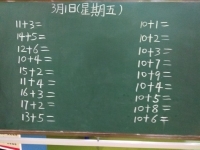 3月1日(星期五)
11+3=
14+5=
12+6=
10+4=
15+2=
11+4=
16+3=
17+2=
13+5=
10+1=
10+2=
10+3=
10+7=
10+9=
10+4=
10+5=
10+8=
10+6=